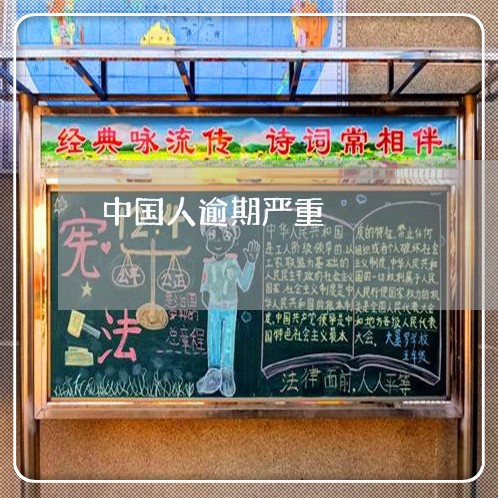 经典咏流传 诗词常相伴
中国人逾期严重
12.4
宪
法
公平 公正
总章程
中华人民共和国
是工人阶级领导的,以
工农联盟为基础的
人民民主专政的社会主义
国家。社会主义制度是中
华人民共和国的根本制
度。中国共产党领导是中
国特色社会主义最本
质的特征。禁止任何
组织或者个人破坏社会
主义制度。中华人民共和
国的一切权利属于人民。
人民行使国家权力的机
关是全国人民代表大会
和地方各级人民代表
大会。
五年级
法律面前,人人平等